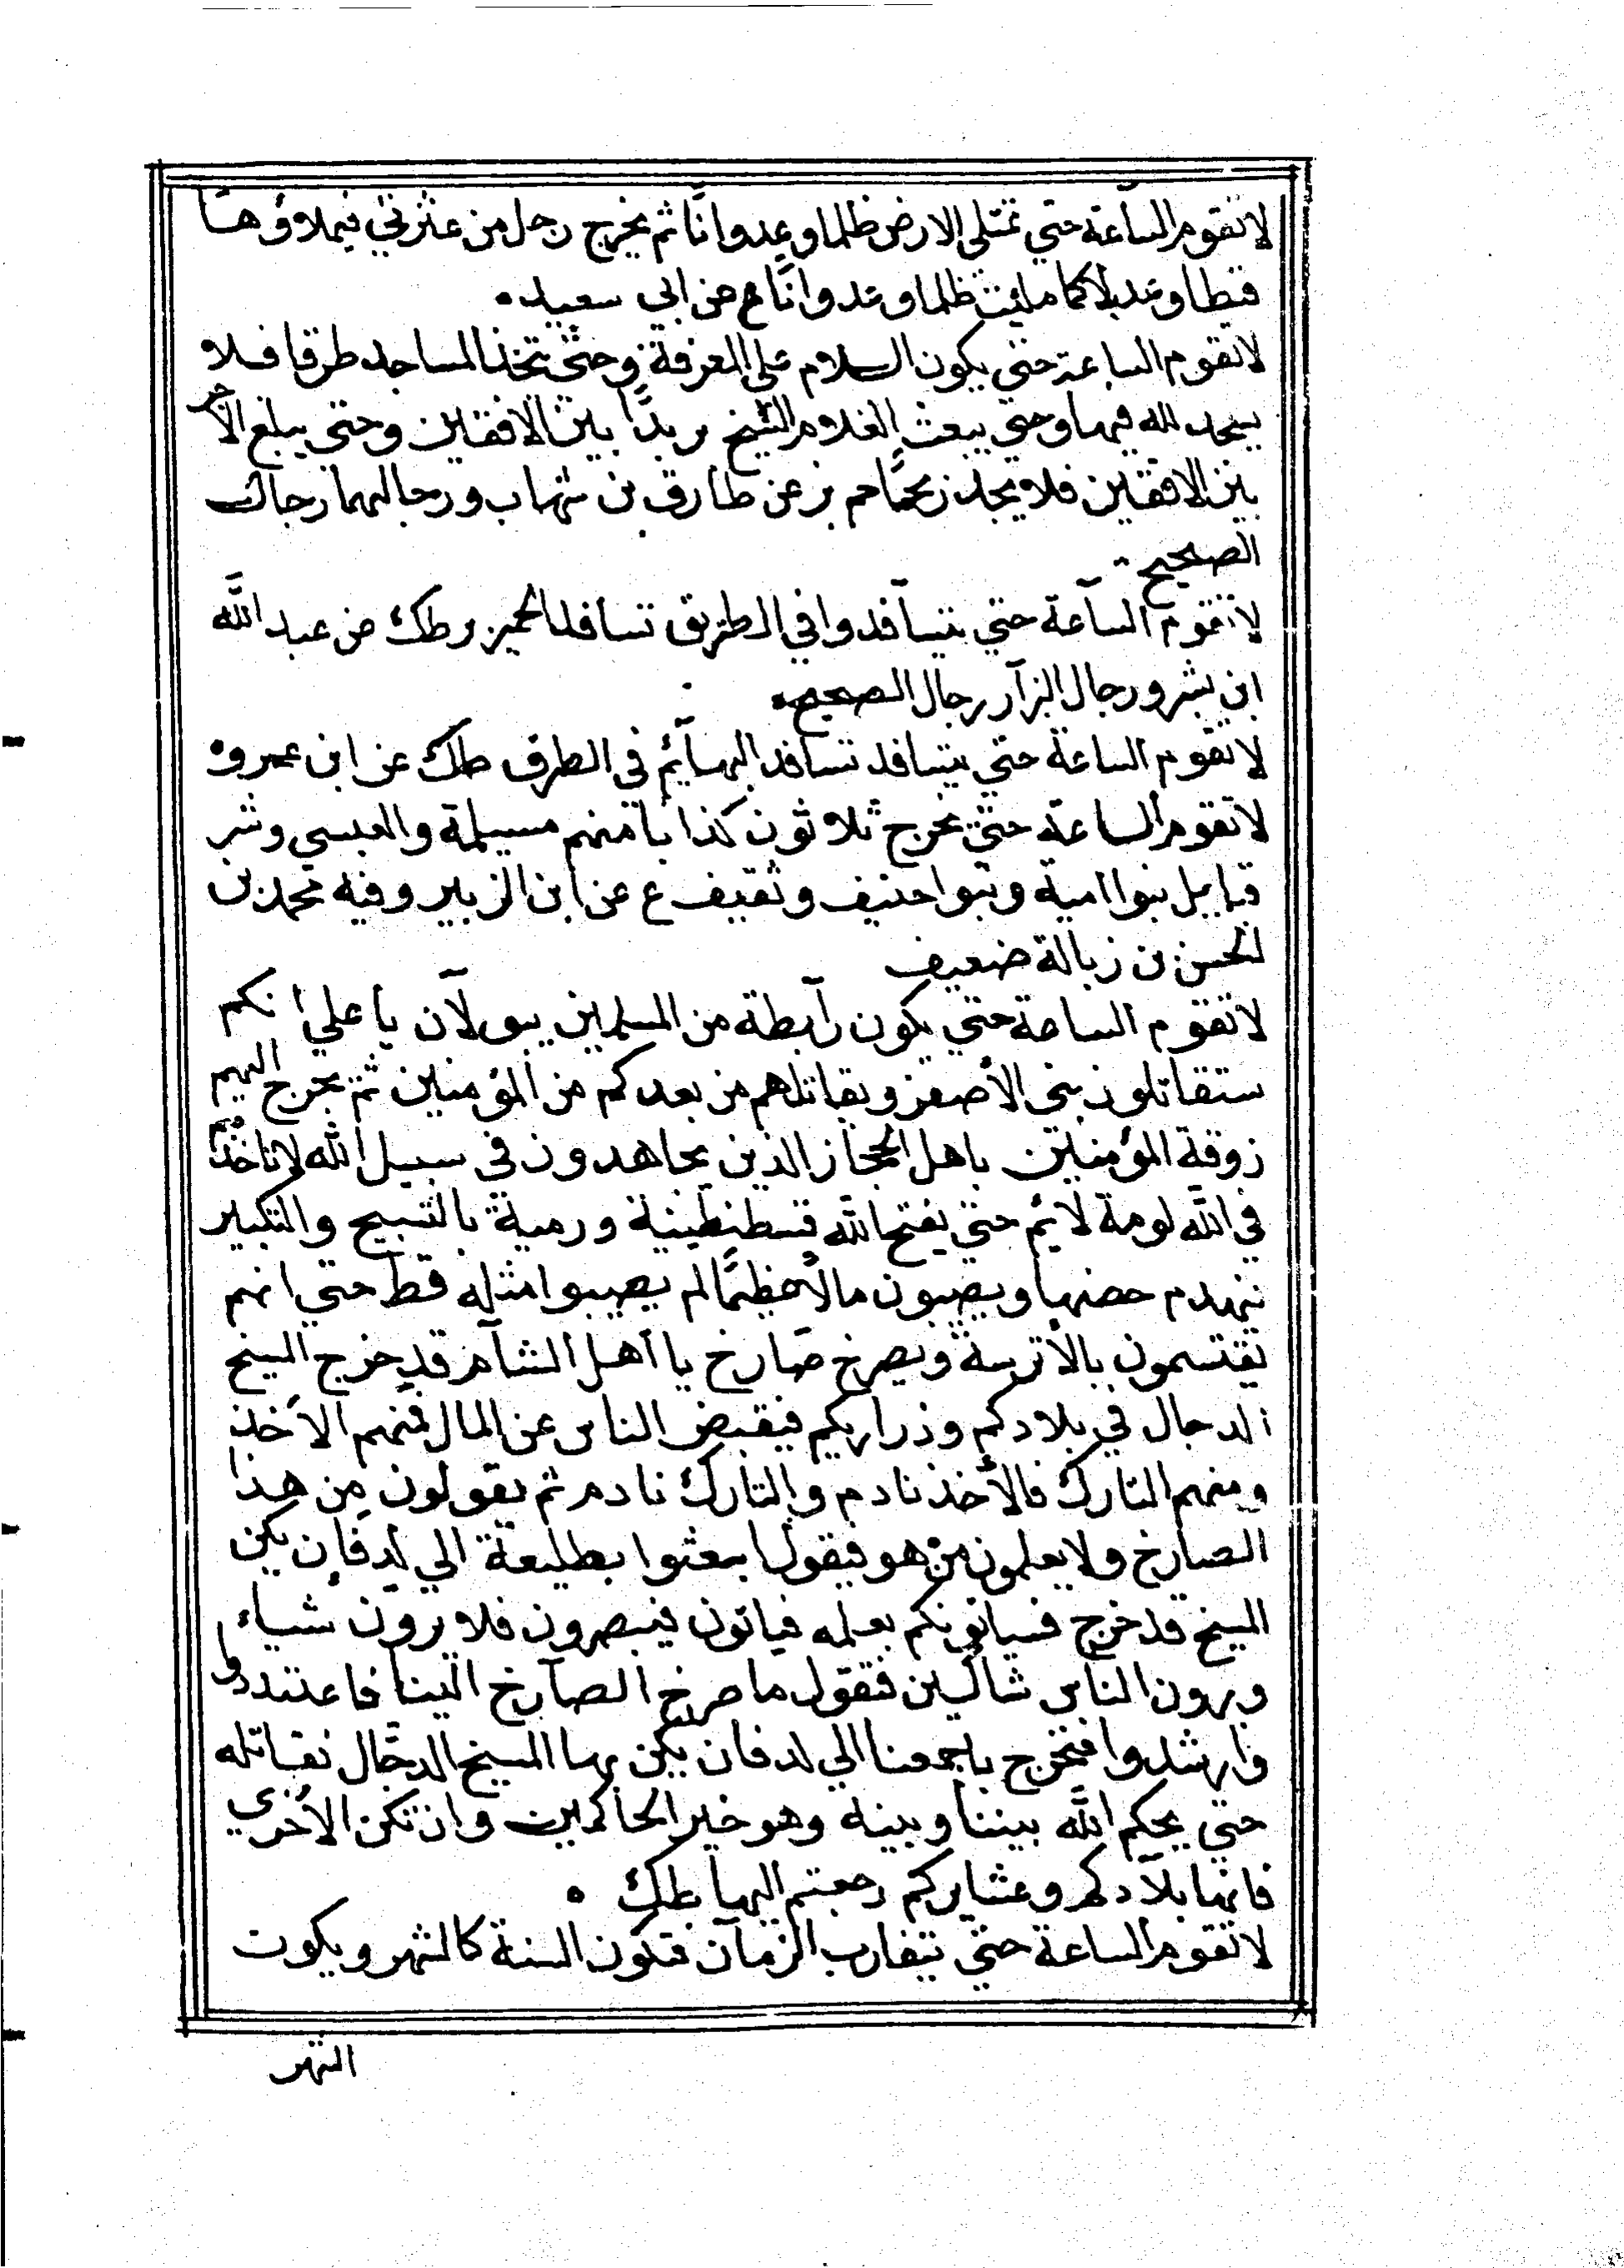 لا تقوم الساعة حتي تمتلي الارض ظلما وعدوانا ثم يخرج رجل من عترتي فيملاؤها
قسطا وعدلا كما ملئت ظلما وعدوانا ع عن ابي سعيد
لا تقوم الساعة حتي يكون السلام علي المعرفة وحتي تتخذ المساجد طرقا فلا
يسجد لله فيها وحتي يبعث الغلام الشيخ بريدا بين الافقين وحتي يبلغ التاجر
بين الافقين فلا يجد ربحا حم بز عن طارق بن شهاب ورجالهما رجال
الصحيح
لا تقوم الساعة حتي يتسافدوا في الطريق تسافد الحمير بز طك عن عبد الله
ابن بشر ورجال البزار رجال الصحيح
لا تقوم الساعة حتي يتسافد تسافد البهايم في الطرق طك عن ابن عمرو
لا تقوم الساعة حتي يخرج ثلاثون كذابا منهم مسيلمة والعبسي وشر
قبايل بنوا امية وبنوا حنيف وثقيف ع عن ابن الزبير وفيه محمد بن
الحسن بن زبالة ضعيف
لا تقوم الساعة حتي يكون رابطة من المسلمين ببولان يا علي انكم
ستقاتلون بني الأصفر ويقاتلهم من بعدكم من المؤمنين ثم يخرج اليهم
روقة المؤمنين باهل الحجاز الذين يجاهدون في سبيل الله لا تاخذهم
في الله لومة لايم حتي يفتح الله قسطنطينية ورمية بالتسبيح والتكبير
فيهدم حصنها ويصيبون مالا عظيما لم يصيبوا مثله قط حتي انهم
يقتسمون بالأترسة ويصرخ صارخ يا اهل الشام قد خرج المسيح
الدجال في بلادكم وذراريكم فيقبض الناس عن المال فمنهم الآخذ
ومنهم التارك فالأخذ نادم والتارك نادم ثم يقولون من هذا
الصارخ ولا يعلمون من هو فيقول ابعثوا بطليعة الي لد فان يكن
المسيح قد خرج فسياتونكم بعلمه فياتون فيبصرون فلا يرون شياء
ويرون الناس شاكين فتقول ما صرخ الصارخ الينا فاعتددوا
وارشدوا فنخرج باجمعنا الي لد فان يكن بها المسيح الدجال نقاتله
حتي يحكم الله بيننا وبينه وهو خير الحاكمين وان تكن الأخري
فانها بلادكم وعشايركم رجعتم اليها طك
لا تقوم الساعة حتي يتقارب الزمان فتكون السنة كالشهر ويكون
الشهر